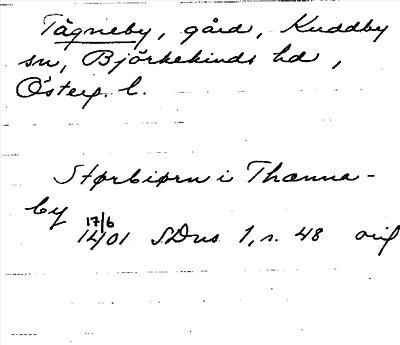 Tägneby, gård, Kuddby
sn, Björkekinds hd,
Österg. l.
Størbiørn i Thænna-
by
17/6
1401 SDns 1, s. 48 orig